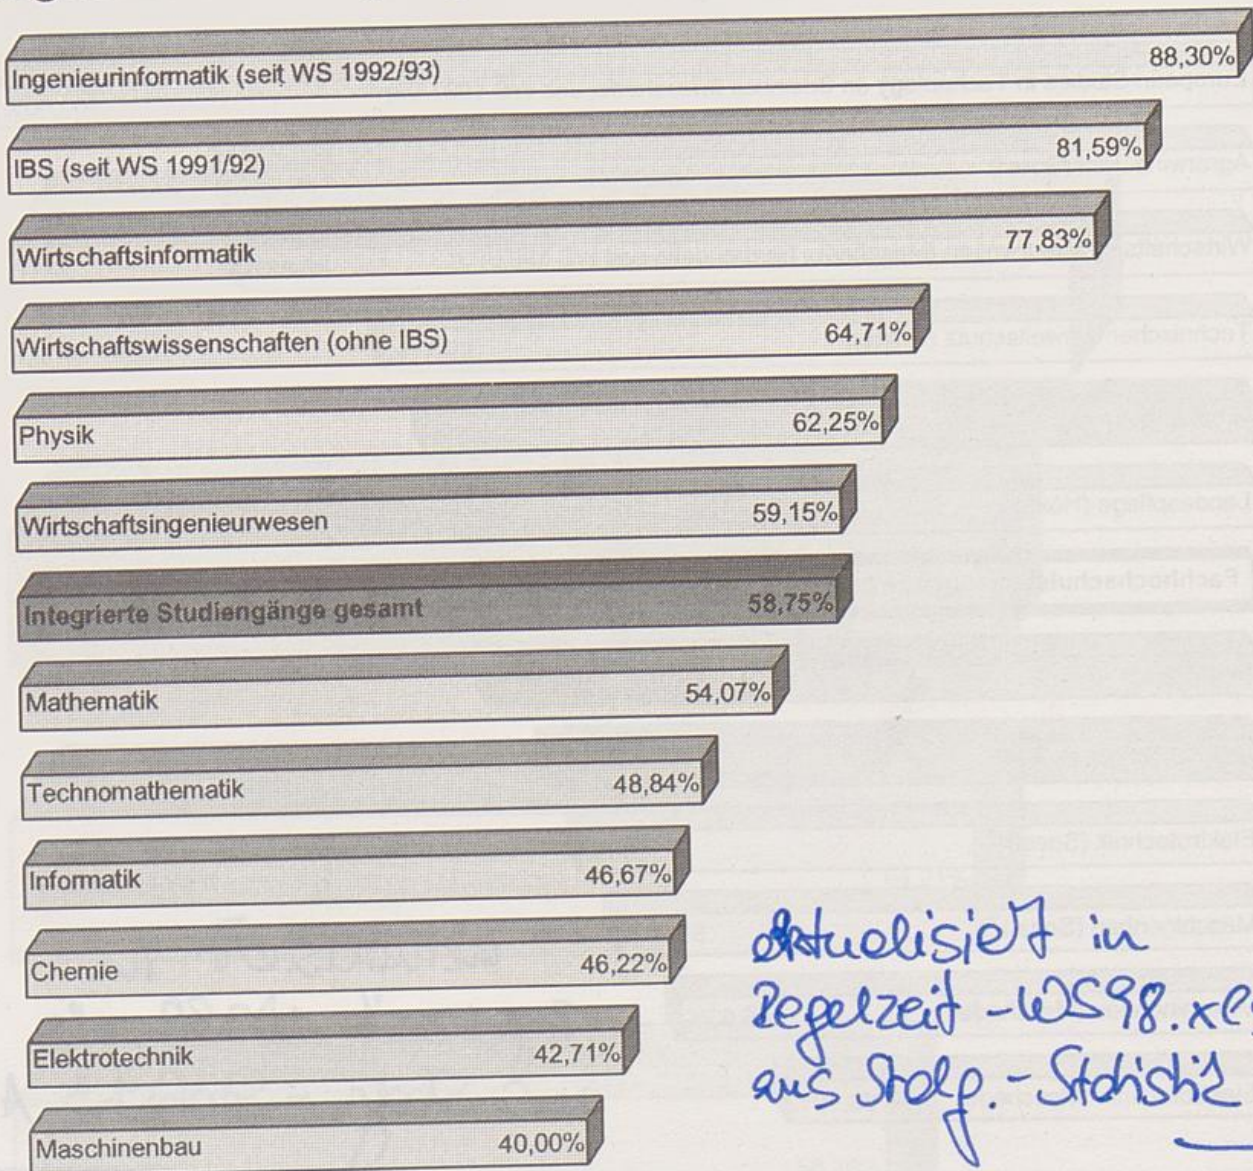 Ingenieurinformatik (seit WS 1992/93) 88,30%
IBS (seit WS 1991/92) 81,59%
Wirtschaftsinformatik 77,83%
Wirtschaftswissenschaften (ohne IBS) 64,71%
Physik 62,25%
Wirtschaftsingenieurwesen 59,15%
Integrierte Studiengänge gesamt 58,75%
Mathematik 54,07%
Technomathematik 48,84%
Informatik 46,67%
Chemie 46,22%
Elektrotechnik 42,71%
Maschinenbau 40,00%
aktualisiert in
Regelzeit - WS98.xls
aus Stdg. - Statistik